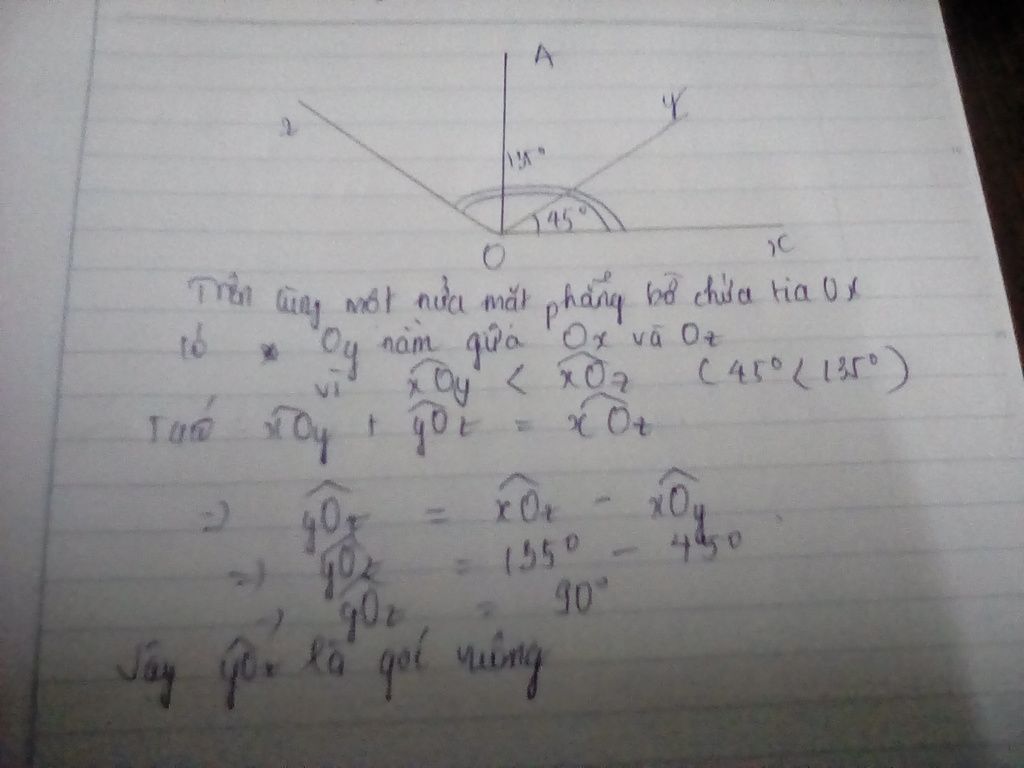 A
z
y
135°
45°
O
x
Trên cùng một nửa mặt phẳng bờ chứa tia Ox
có Oy nằm giữa Ox và Oz
vì xOy < xOz (45° < 135°)
Ta có xOy + yOz = xOz
=> yOz = xOz - xOy
=> yOz = 135° - 45°
=> yOz = 90°
Vậy yOz là góc vuông